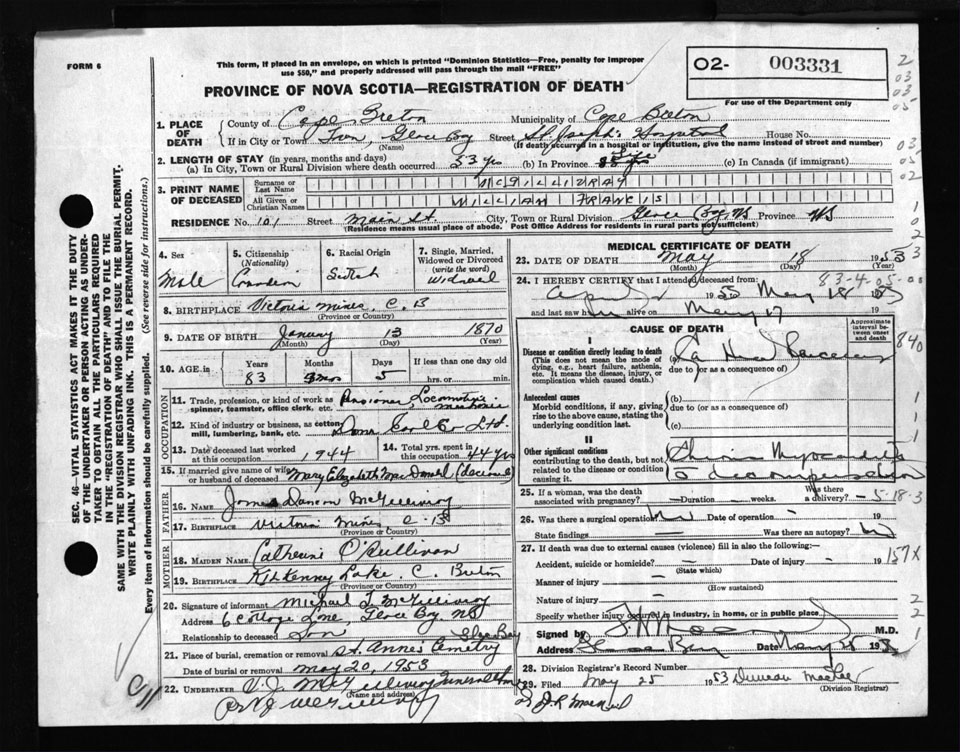 FORM 6
This form, if placed in an envelope, on which is printed "Dominion Statistics—Free, penalty for improper
use $50," and properly addressed will pass through the mail "FREE"
O2- 003331
For use of the Department only
PROVINCE OF NOVA SCOTIA—REGISTRATION OF DEATH
1. PLACE OF DEATH
County of Cape Breton Municipality of Cape Breton
If in City or Town Town, Glace Bay Street St. Joseph's Hospital House No.
(Name) (If death occurred in a hospital or institution, give the name instead of street and number)
2. LENGTH OF STAY (in years, months and days)
(a) In City, Town or Rural Division where death occurred 53 yrs (b) In Province Life (c) In Canada (if immigrant)
3. PRINT NAME OF DECEASED
Surname or Last Name McGILLIVRAY
All Given or Christian Names WILLIAM FRANCIS
RESIDENCE No. 101 Street Main St. City, Town or Rural Division Glace Bay NS Province NS
(Residence means usual place of abode. Post Office Address for residents in rural parts not sufficient)
4. Sex
Male
5. Citizenship
(Nationality)
Canadian
6. Racial Origin
Scotch
7. Single, Married,
Widowed or Divorced
(write the word)
Widowed
8. BIRTHPLACE Victoria Mines, C. B
(Province or Country)
9. DATE OF BIRTH January 13 1870
(Month) (Day) (Year)
10. AGE in Years Months Days If less than one day old
83 5 hrs. or min.
OCCUPATION
11. Trade, profession, or kind of work as
spinner, teamster, office clerk, etc. Pensioner, Locomotive
12. Kind of industry or business, as cotton
mill, lumbering, bank, etc. Dom. Coal Co Ltd.
13. Date deceased last worked
at this occupation 1944
14. Total yrs. spent in
this occupation 44 yrs
15. If married give name of wife
or husband of deceased Mary Elizabeth (deceased)
FATHER
16. NAME McGillivray
17. BIRTHPLACE Victoria Mines, C. B.
(Province or Country)
MOTHER
18. MAIDEN NAME Catherine O'Sullivan
19. BIRTHPLACE Kilkenny Lake. C. Breton
(Province or Country)
20. Signature of informant Michael McGillivray
Address 6 Cottage Lane, Glace Bay NS
Relationship to deceased Son
21. Place of burial, cremation or removal St. Anne's Cemetery Glace Bay
Date of burial or removal May 20, 1953
22. UNDERTAKER McGillivray Funeral
(Name and address)
McGillivray
MEDICAL CERTIFICATE OF DEATH
23. DATE OF DEATH May 18 1953
(Month) (Day) (Year)
24. I HEREBY CERTIFY that I attended deceased from: 83-4-05-00
May 18
and last saw h alive on May 17 19
CAUSE OF DEATH
Approximate
interval be-
tween onset
and death
I
Disease or condition directly leading to death
(This does not mean the mode of
dying, e.g., heart failure, asthenia,
etc. It means the disease, injury, or
complication which caused death.)
(a) Ca Head Pancreas
due to (or as a consequence of)
Antecedent causes
Morbid conditions, if any, giving
rise to the above cause, stating the
underlying condition last.
(b)
due to (or as a consequence of)
(c)
II
Other significant conditions
contributing to the death, but not
related to the disease or condition
causing it.
Chronic Myocarditis
decompensation
25. If a woman, was the death
associated with pregnancy? — Duration — weeks. Was there
a delivery? — 5-18-3
26. Was there a surgical operation? No Date of operation — 19
State findings — Was there an autopsy? No
27. If death was due to external causes (violence) fill in also the following:—
Accident, suicide or homicide? — Date of injury — 19 157X
(State which)
Manner of injury —
(How sustained)
Nature of injury —
Specify whether injury occurred in industry, in home, or in public place.
Signed by M.D.
Address Glace Bay Date May 25 195
28. Division Registrar's Record Number
29. Filed May 25 1953 Duncan MacLee
(Division Registrar)
SEC. 46—VITAL STATISTICS ACT MAKES IT THE DUTY
OF THE UNDERTAKER OR PERSON ACTING AS UNDER-
TAKER TO OBTAIN ALL THE PARTICULARS REQUIRED
IN THE "REGISTRATION OF DEATH" AND TO FILE THE
SAME WITH THE DIVISION REGISTRAR WHO SHALL ISSUE THE BURIAL PERMIT.
WRITE PLAINLY WITH UNFADING INK. THIS IS A PERMANENT RECORD.
Every item of information should be carefully supplied. (See reverse side for instructions.)
2
03
03
05
03
05
02
1
0
2
3
840
1
1
1
2
2
1